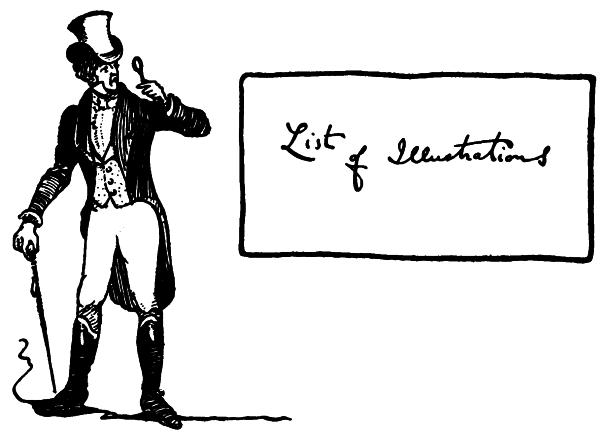 List of Illustrations